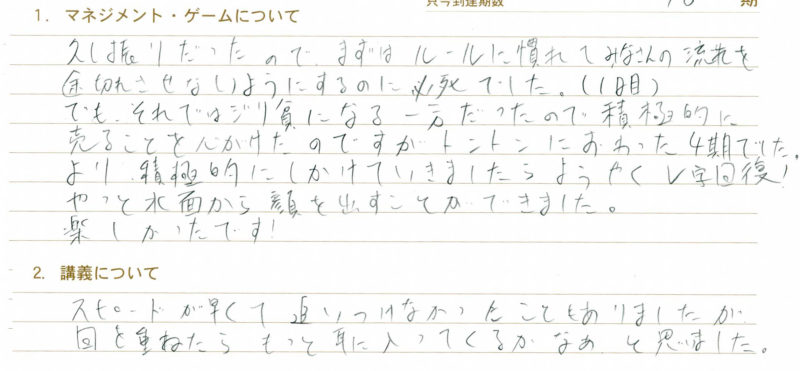 只今到達期数 期
1. マネジメント・ゲームについて
久し振りだったので、まずは ルールに慣れてみなさんの流れを
途切れさせないようにするのに必死でした。(1日目)
でも、それではジリ貧になる一方だったので積極的に
売ることを心がけたのですがトントンにおわった4期でした。
より積極的にしかけていきましたらようやくV字回復!
やっと水面から顔を出すことができました。
楽しかったです!
2. 講義について
スピードが早くて追いつけなかったこともありましたが
回を重ねたら もっと耳に入ってくるかなぁ と思いました。